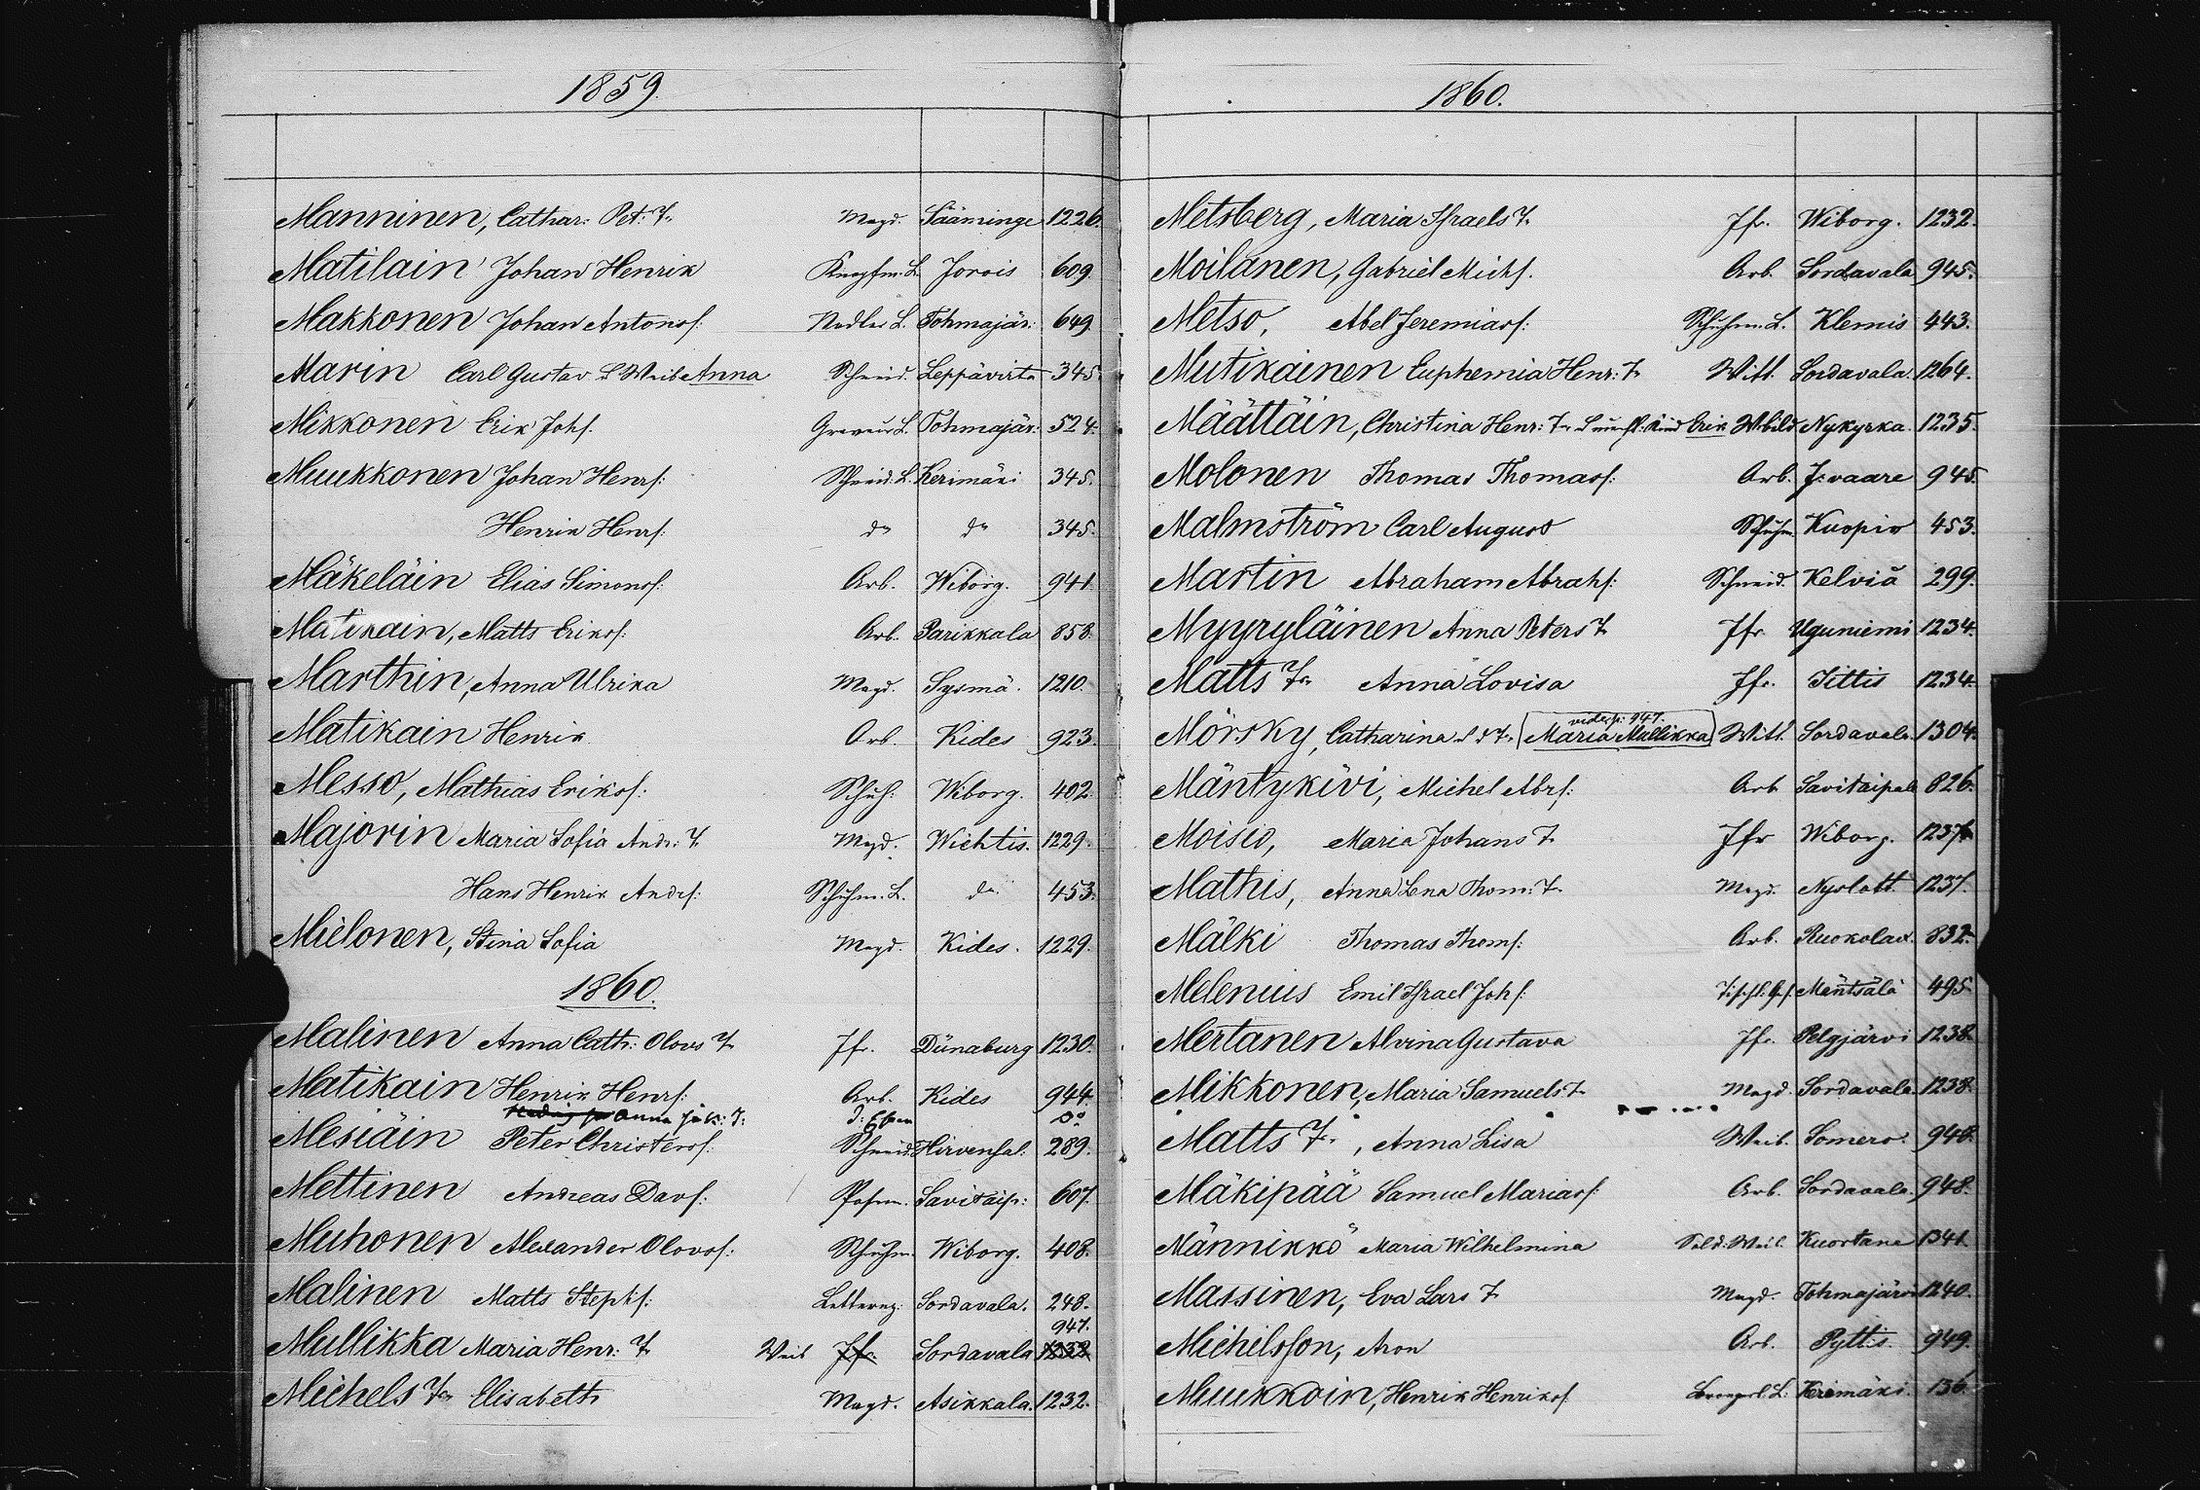 1859.
Manninen, Cathar: Pet: Tr Magd. Sääminge 1226.
Matilain Johan Henrik Knopfm. L. Jorois 609.
Makkonen Johan Antonsf: Nadler L. Tohmajär: 649
Marin Carl Gustav & Weib Anna Schneid. Leppävirta 345
Mikkonen Erik Johf. Graveur L. Tohmajär. 524.
Muukkonen Johan Henrf: Schneid. L. Kerimäki 345.
Henrik Henrf: do do 345.
Mäkeläin Elias Simonsf: Arb. Wiborg. 941.
Matikain, Matts Eriksf: Arb. Parikkala 858.
Marthin, Anna Ulrika Magd. Sysmä. 1210.
Matikain Henrik Arb. Kides 923.
Messo, Mathias Eriksf: Schuh: Wiborg. 402.
Majorin Maria Sofia Andr: Tr Magd. Wichtis. 1229.
Hans Henrik Andrf: Schuhm. L. do 453.
Mielonen, Stina Sofia Magd. Kides. 1229.
1860.
Malinen Anna Cath: Olovs Tr Jfr. Dünaburg 1230.
Matikain Henrik Henrf: Arb. Kides 944.
Anna Do
Mesiäin Peter Christersf: Schneid. Hirvensal: 289.
Mettinen Andreas Davf: Posem. Savitaip: 607.
Muhonen Alexander Olovsf: Schuhm. Wiborg. 408.
Malinen Matts Stephf: Sordavala. 248.
947.
Mullikka Maria Henr: Tr Weib Jfr. Sordavala 1232.
Michels Tr Elisabeth Magd. Asikkala. 1232.
1860.
Metsberg, Maria Israels Tr Jfr. Wiborg. 1232.
Moilanen, Gabriel Michf. Arb. Sordavala 945.
Metso, Abel Jeremiasf: Schuhm. L. Klemis 443.
Mutikainen Euphemia Henr: Tr Witt. Sordavala. 1264.
Määttäin, Christina Henr: Tr & Kind Erik Nykyrka. 1235.
Molonen Thomas Thomasf: Arb. J:vaara 945.
Malmström Carl August Schuhm. Kuopio 453.
Martin Abraham Abrahf: Schneid. Kelviå 299.
Myyryläinen Anna Peters Tr Jfr. Uguniemi 1234.
Matts Tr Anna Lovisa Jfr. Tittis 1234.
vide p: 947.
Mörsky, Catharina & d Tr Maria Mullikka Witt. Sordavala. 1304.
Mäntykivi, Michel Abrf: Arb Savitaipale 826.
Moisio, Maria Johans Tr Jfr Wiborg. 1237.
Mathis, Anna Lena Thom: Tr. Magd. Nyslott. 1237.
Mälki Thomas Thomf: Arb. Ruokolax. 832.
Melenius Emil Israel Johf: Mäntsälä 495.
Mertanen Alvina Gustava Jfr. Pelgjärvi 1238.
Mikkonen, Maria Samuels Tr Magd. Sordavala 1238.
Matts Tr, Anna Lisa Weib. Somero. 948.
Mäkipää Samuel Mariasf: Arb. Sordavala. 948.
Männikkö Maria Wilhelmina Sold: Weib. Kuortane 1341.
Massinen, Eva Lars Tr Magd. Tohmajärvi 1240.
Michelsson, Aron Arb. Pyttis. 949.
Muukkoin, Henrik Henriksf. Kerimäki. 136.